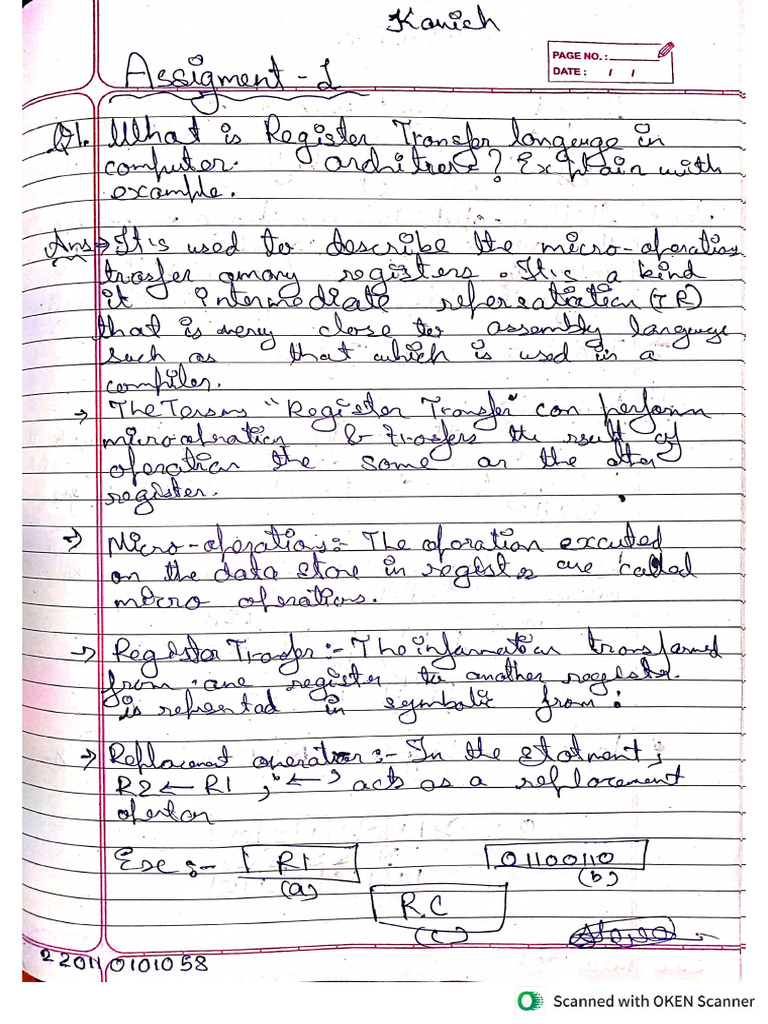 Kanich
PAGE NO. :
DATE : / /
Assigment - 1
Q1. What is Register Transfer languge in
computer. arditrere? Explain with
example.
Ans→ It's used to describe the micro-operations
trasfer among registers. It is a kind
it intermediate
that is very close to assembly language
such as that which is used in a
compiler.
→ The Terms "Register Transfer" can perform
microoperation & trasfers the result of
operation the some or the other
register.
→ Micro-operations:- The oporation excuted
on the data store in registrs are called
micro operations.
→ Register Transfer :- The information transformed
from one register to another registr.
is represntad in symbolic from :
→ Replacement operator :- In the statment,
R2 ← R1 , "←" acts as a replacement
opertor
Exe :- R1 01100110
(a) (b)
RC
(c)
22011 0101058
Scanned with OKEN Scanner